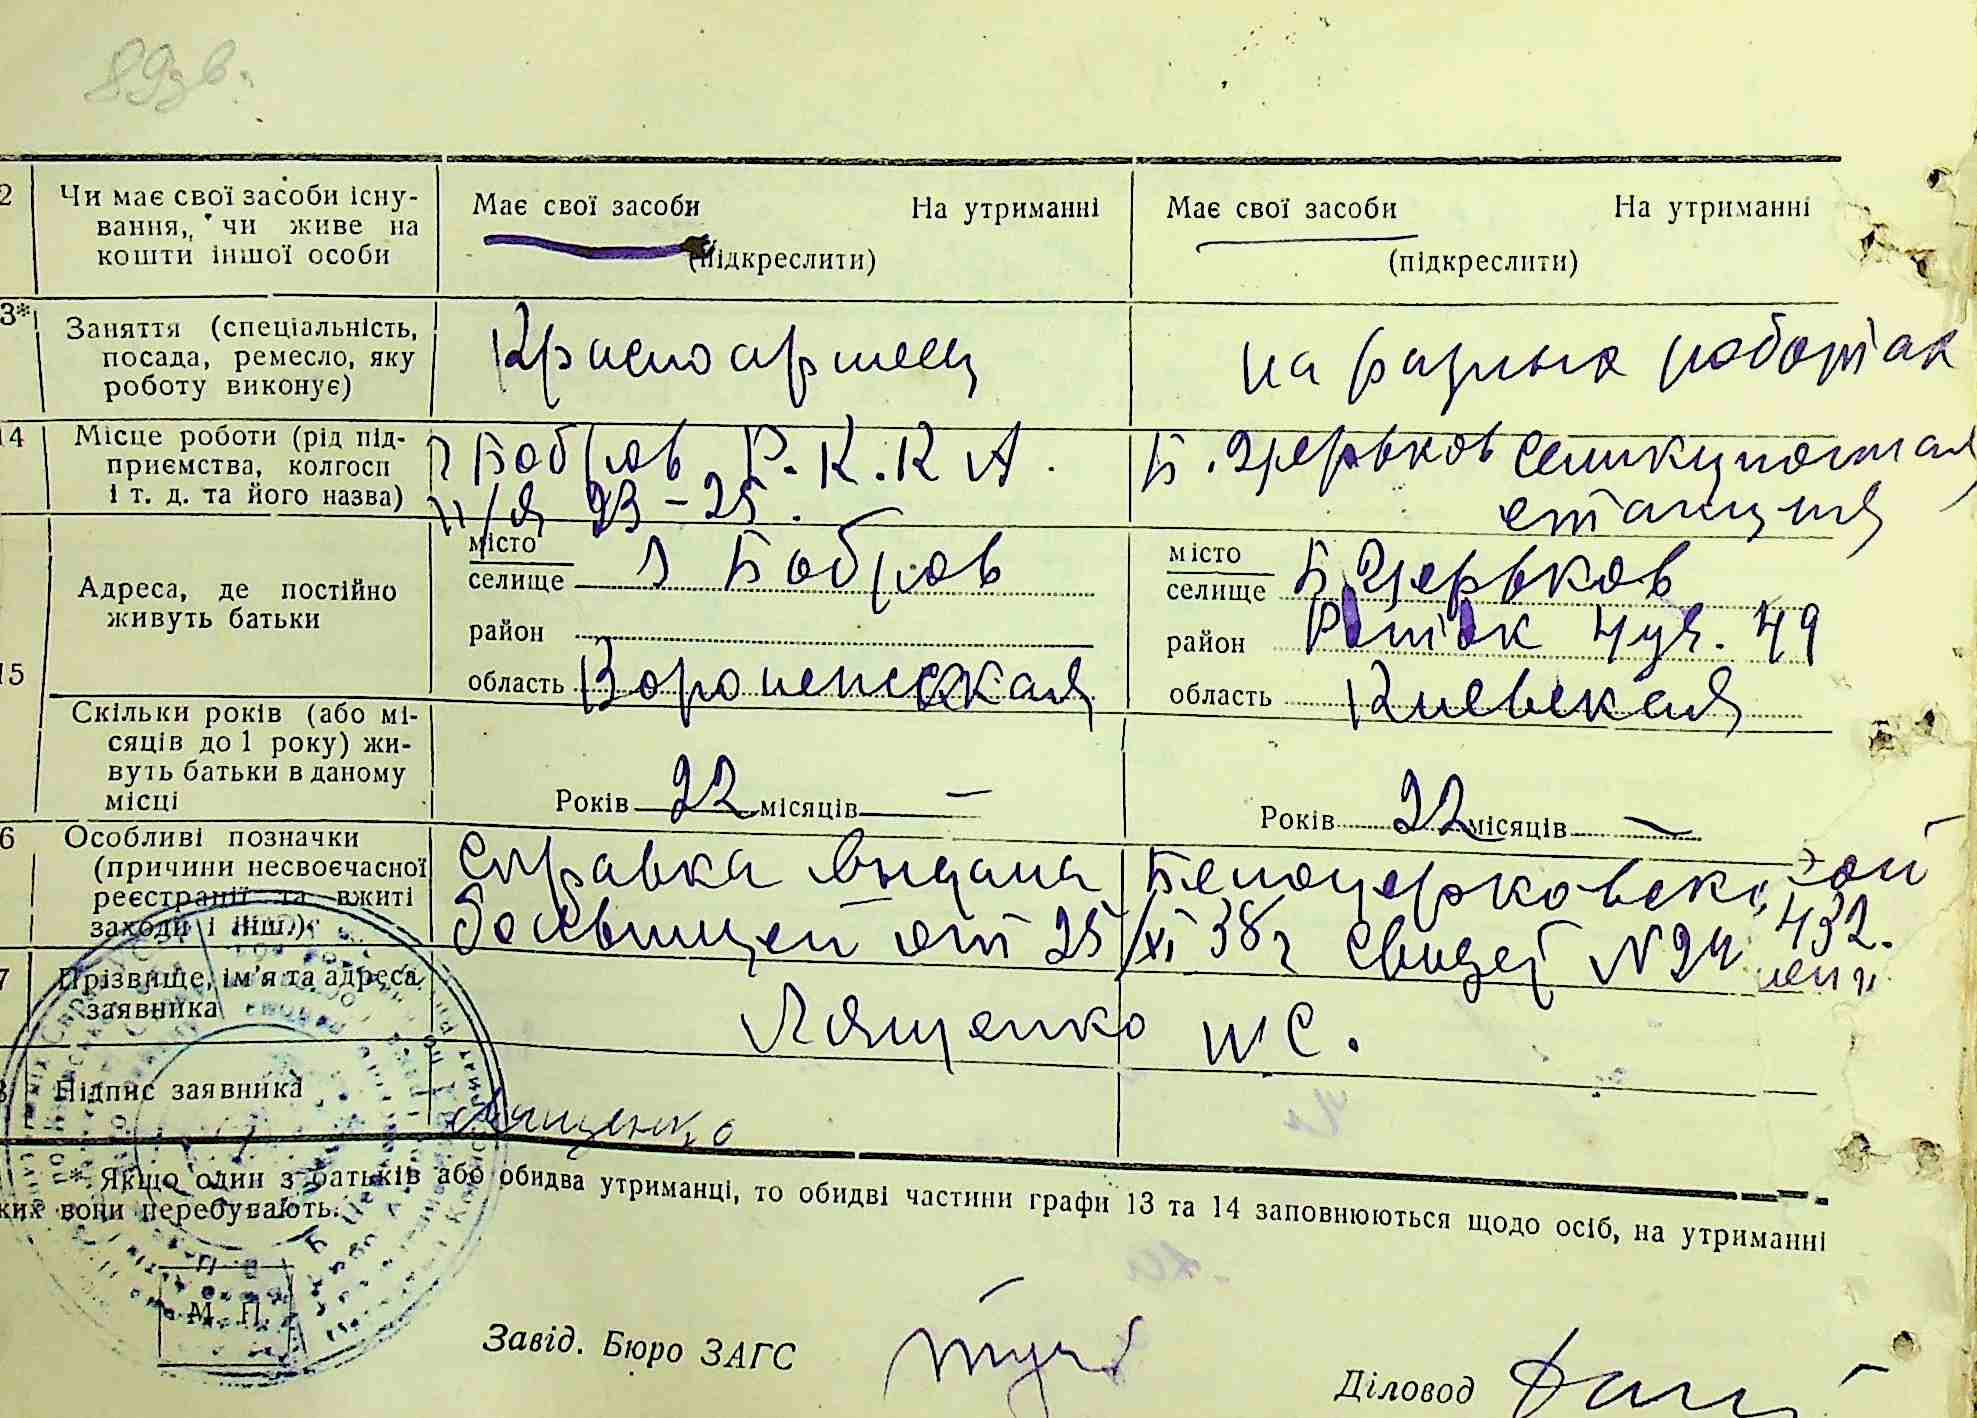 89зв.
2 Чи має свої засоби існу-
вання, чи живе на
кошти іншої особи
Має свої засоби На утриманні
(підкреслити)
Має свої засоби На утриманні
(підкреслити)
3* Заняття (спеціальність,
посада, ремесло, яку
роботу виконує)
Красноармеец
на разных работах
14 Місце роботи (рід під-
приємства, колгосп
і т. д. та його назва)
г Бобров Р.К.К.А.
п/я 23-25.
Б. Церьков
станция
15 Адреса, де постійно
живуть батьки
місто
селище г Бобров
район
область Воронежская
місто
селище Б. Церьков
район 4 уч. 49
область Киевская
Скільки років (або мі-
сяців до 1 року) жи-
вуть батьки в даному
місці
Років 22 місяців —
Років 22 місяців —
6 Особливі позначки
(причини несвоєчасної
реєстрації та вжиті
заходи і інш.)
Справка выдана Белоцерковской
Больницей от 25/XI 38г свидет N24 432.
7 Прізвище, ім'я та адреса
заявника
Лященко М С.
8 Підпис заявника
Лященко
* Якщо один з батьків або обидва утриманці, то обидві частини графи 13 та 14 заповнюються щодо осіб, на утриманні
яких вони перебувають.
М. П.
Завід. Бюро ЗАГС
Діловод